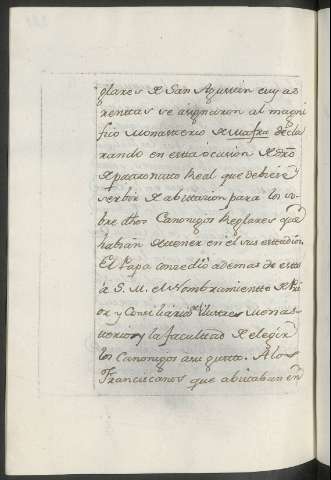 glares de San Agustin cuyas
rentas se asignaron al magni
fico Monasterio de Mafra decla
rando en esta ocasion de dro
de patronato Real que debien
serbir de abitacion para los so-
bre dhos Canonigos Reglares que
habian de tener en el sus estudios.
El Papa concedió ademas de esto
á S. M. el Nombramiento de Pri
or y Consiliarios Monas
terio y la facultad de elegir
los Canonigos a su gusto. A los
Franciscanos que abitaban en